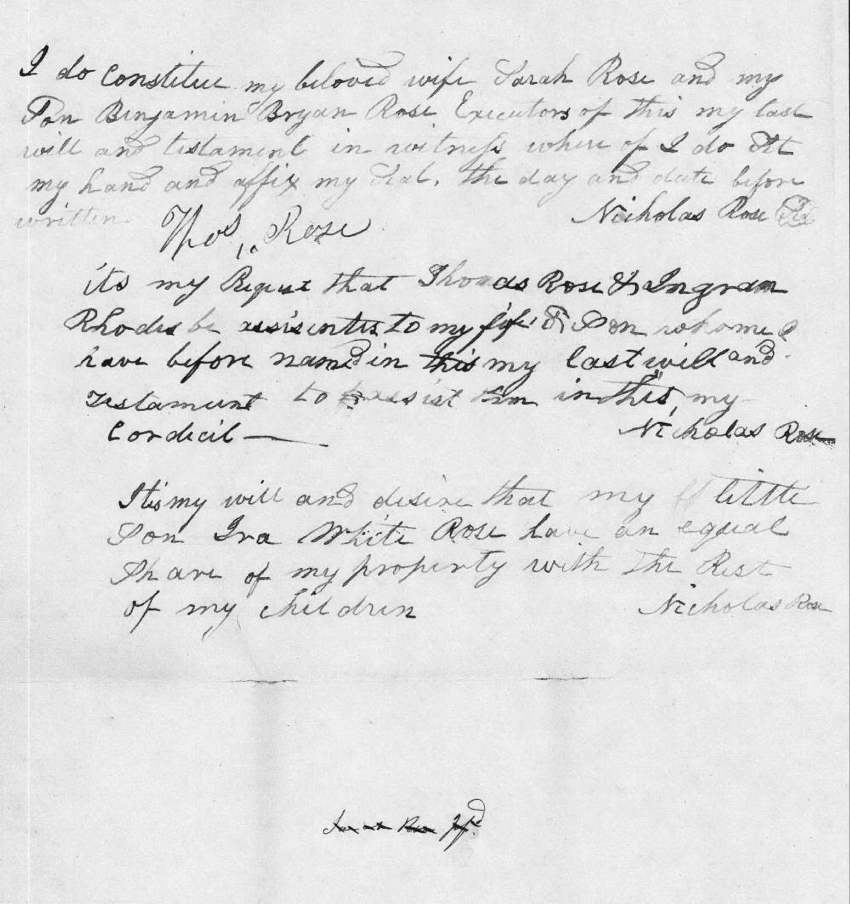 I do constitue my beloved wife Sarah Rose and my
Son Benjamin Bryan Rose Executors of this my last
will and testament in witness where of I do Set
my hand and affix my Seal. the day and date before
written
Nicholas Rose
Thos,, Rose
its my Request that Thomas Rose & Ingram
Rhodes be assisentes to my wife & Son whome I
have before named in this my last will and
testament to assist them in this my
Cordecil
Nicholas Rose
Itis my will and desire that my little
Son Ira White Rose have an equal
Share of my property with the Rest
of my children
Nicholas Rose